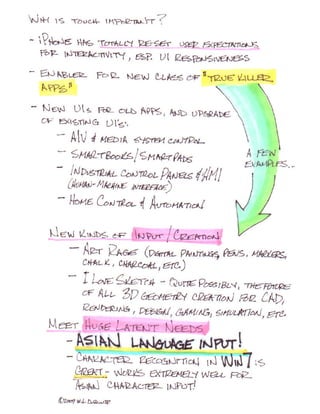 WHY IS TOUCH IMPORTANT?
- iPHONE HAS TOTALLY RE-SET USER EXPECTATIONS
FOR INTERACTIVITY, ESP. UI RESPONSIVENESS
- ENABLER FOR NEW CLASS OF "TRUE KILLER
APPS"
- NEW UIs FOR OLD APPS, AND UPGRADE
OF EXISTING UI's:
- A/V & MEDIA SYSTEM CONTROL
- SMARTBOOKS/SMARTPADS
- INDUSTRIAL CONTROL PANELS & HMI
(HUMAN-MACHINE INTERFACES)
- HOME CONTROL & AUTOMATION
A FEW
EXAMPLES...
NEW KINDS OF INPUT/CREATION
- ART RAGE (DIGITAL PAINTING, PENS, MARKERS,
CHALK, CHARCOAL, ETC)
- I LOVE SKETCH - QUITE POSSIBLY, THE FUTURE
OF ALL 3D GEOMETRY CREATION FOR CAD,
RENDERING, DESIGN, GAMING, SIMULATION, ETC
MEET HUGE LATENT NEEDS
- ASIAN LANGUAGE INPUT!
- CHARACTER RECOGNITION IN WIN7 IS
GREAT - WORKS EXTREMELY WELL FOR
ASIAN CHARACTER INPUT!